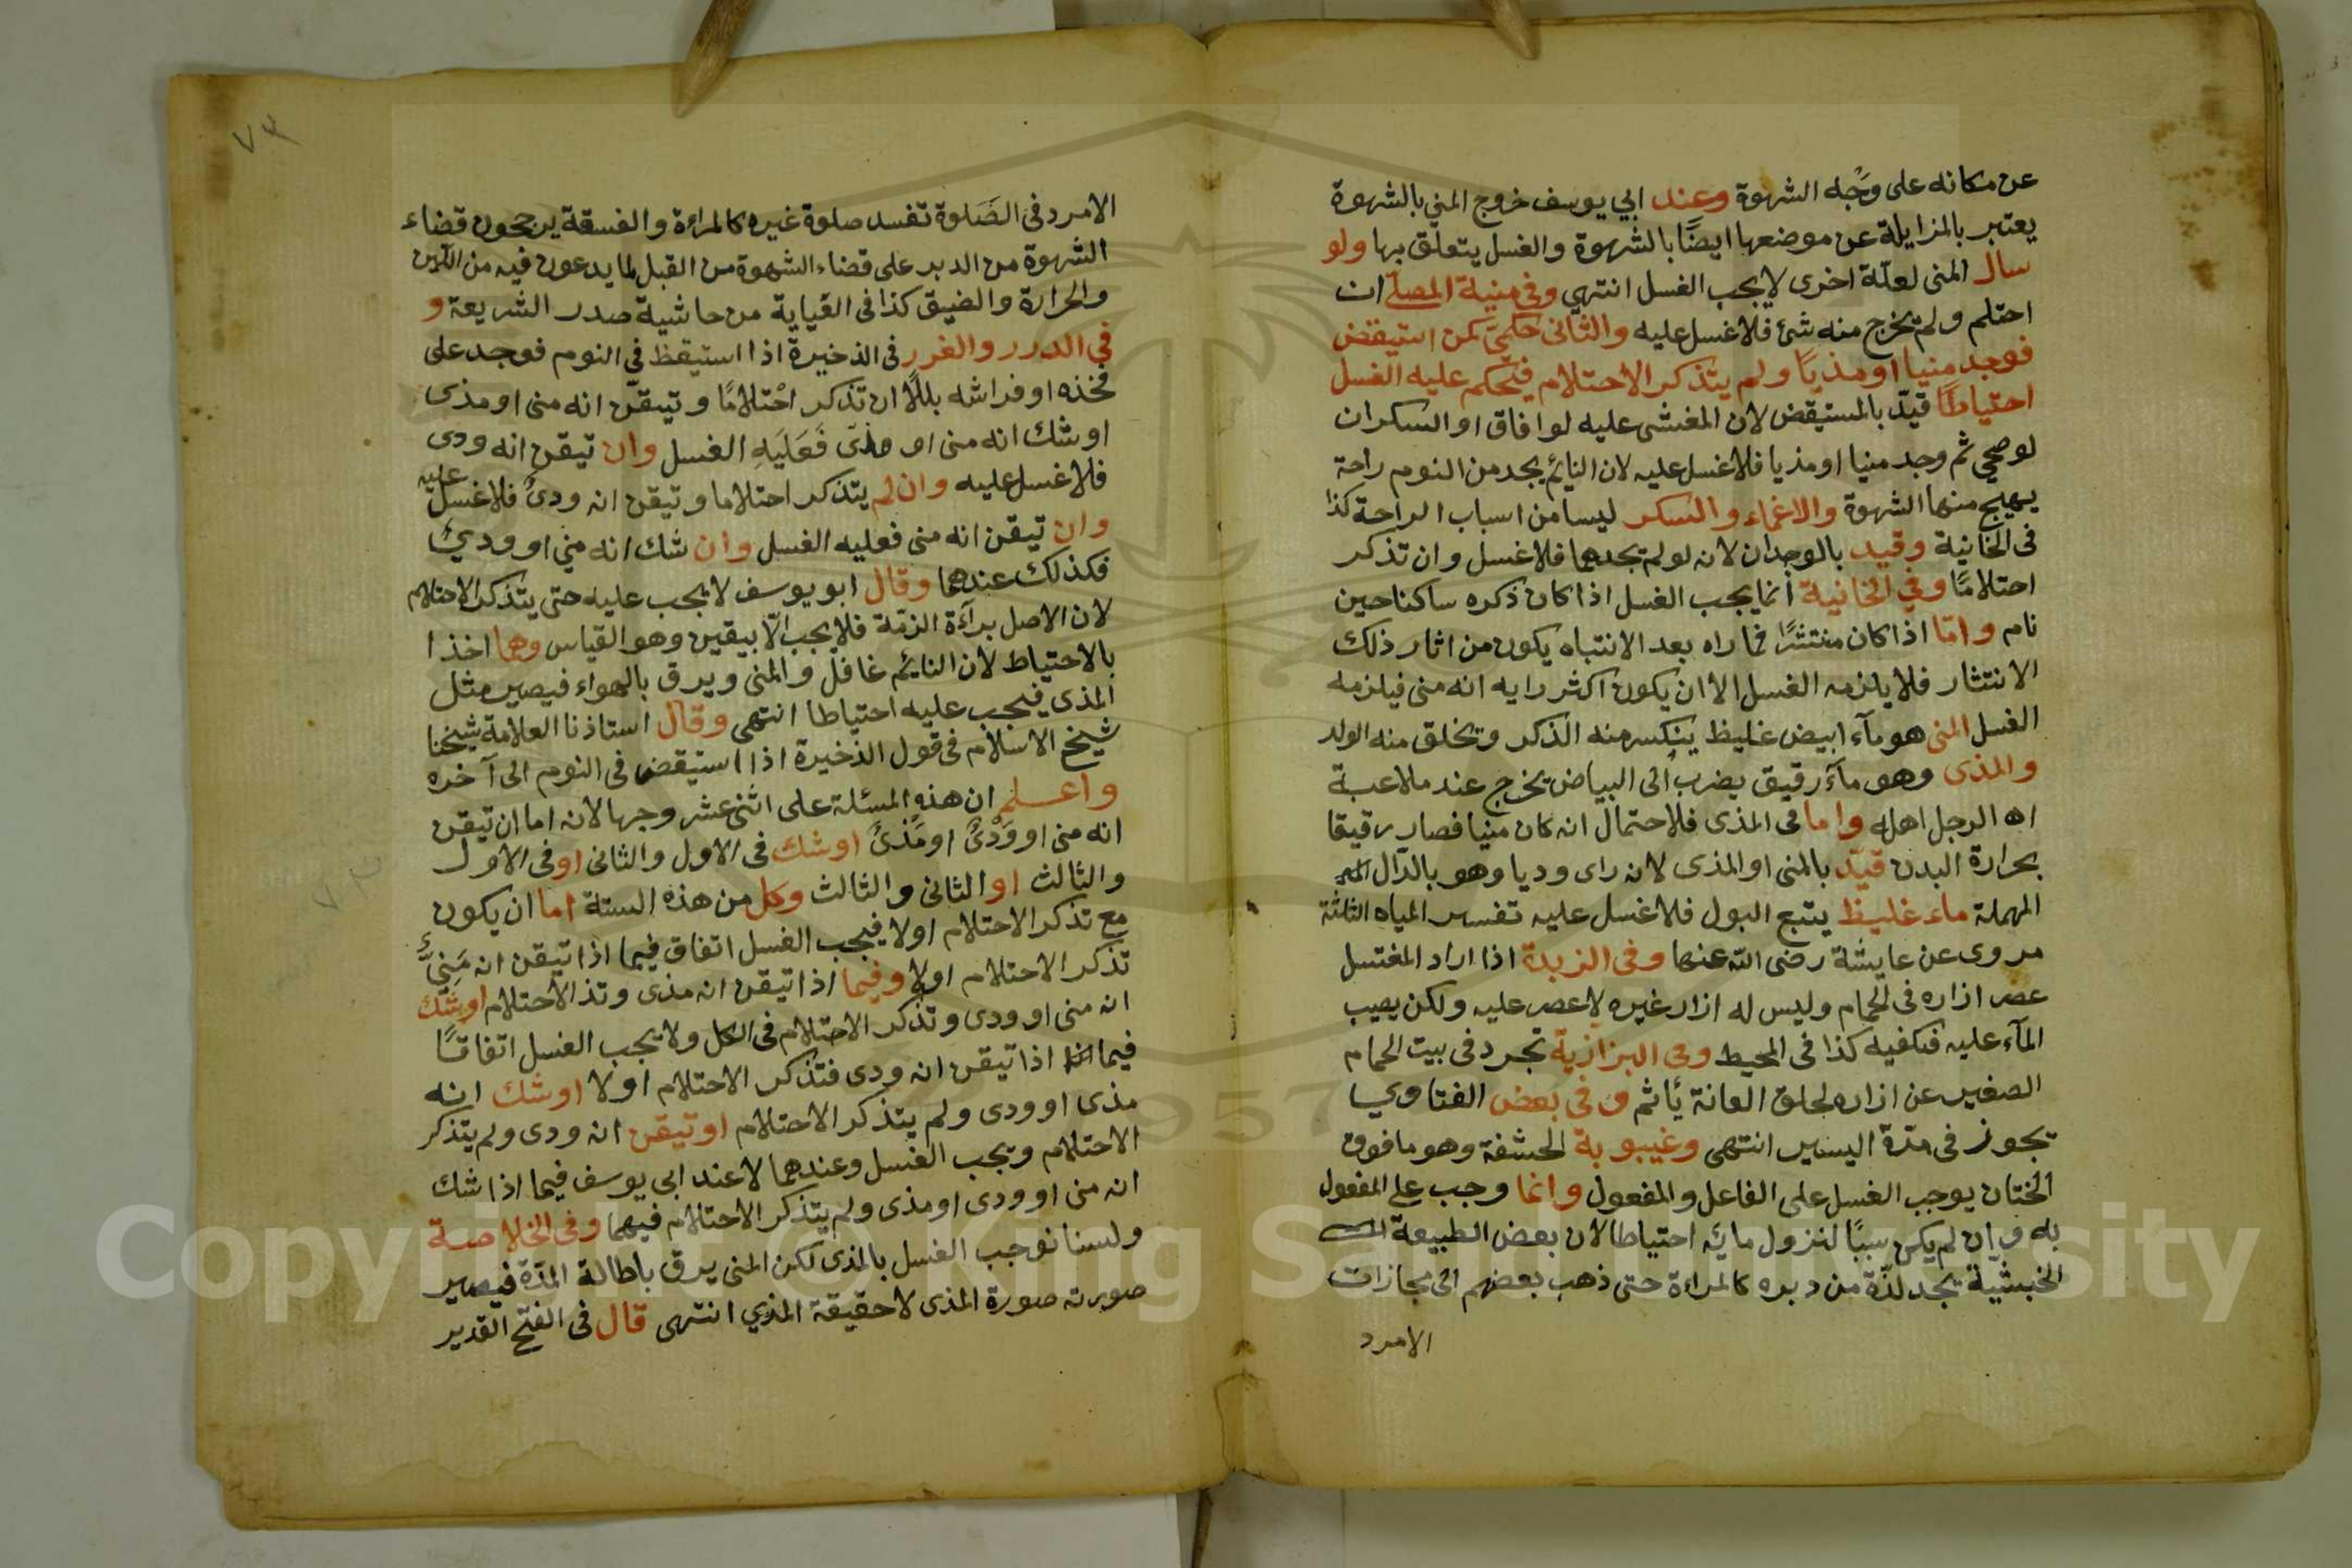 عن مكانه على وجه الشهوة وعند ابي يوسف خروج المني بالشهوة
يعتبر بالمزايلة عن موضعها ايضًا بالشهوة والغسل يتعلّق بها ولو
سال المنى لعلّة اخرى لا يجب الغسل انتهي وفي منية المصلّى ان
احتلم ولم يخرج منه شئ فلا غسل عليه والثانى حكميّ كمن استيقض
فوجد منيا او مذيًا ولم يتذكر الاحتلام فيحكم عليه الغسل
احتياطًا قيّد بالمستيقض لان المغشى عليه لو افاق او السكران
لو صحي ثم وجد منيا او مذيا فلا غسل عليه لان النائم يجد من النوم راحة
يهيج منها الشهوة والاغماء والسكر ليسا من اسباب الراحة كذا
فى الخانية وقيد بالوجدان لانه لو لم يجدهما فلا غسل وان تذكر
احتلامًا وفي الخانية انما يجب الغسل اذا كان ذكره ساكنا حين
نام وامّا اذا كان منتشرًا فما راه بعد الانتباه يكون من اثار ذلك
الانتثار فلا يلزمه الغسل الا ان يكون اكثر رايه انه منى فيلزمه
الغسل المنى هو مآء ابيض غليظ ينكسر منه الذكر ويخلق منه الولد
والمذى وهو مآء رقيق يضرب الى البياض يخرج عند ملاعبة
الرجل اهله واما فى المذى فلاحتمال انه كان منيا فصار رقيقا
بحرارة البدن قيّد بالمنى او المذى لانه راى وديا وهو بالدّال
المهملة ماء غليظ يتبع البول فلا غسل عليه تفسير المياه الثلثة
مروى عن عايشة رضى الله عنها وفى الزبدة اذا اراد المغتسل
عصر ازاره فى الحمام وليس له ازار غيره لا عصر عليه ولكن يصيب
المآء عليه فتكفيه كذا فى المحيط وفى البزازية تجرد فى بيت الحمام
الصغير عن ازاره لحلق العانة يأثم وفى بعض الفتاوي
تجوز فى مدّة اليسير انتهى وغيبوبة الحشفة وهو ما فوق
الختان يوجب الغسل على الفاعل والمفعول وانما وجب على المفعول
به وان لم يكن سببًا لنزول مائه احتياطا لان بعض الطبيعة
الخبيثة تجد لذّة من دبره كالمراءة حتى ذهب بعضهم الى مجازات
الامرد
٧٣
الامرد فى الصَلوة تفسد صلوة غيره كالمراءة والفسقة يرجحون قضاء
الشهوة من الدبر على قضاء الشهوة من القبل لما يدعون فيه من اللين
والحرارة والضيق كذا فى القياية من حاشية صدر الشريعة و
في الدرر والغرر فى الذخيرة اذا استيقظ في النوم فوجد على
فخذه او فراشه بللًا ان تذكر احْتلامًا وتيقّن انه منى او مذى
او شك انه منى او مذى فَعَلَيَهِ الغسل وان تيقن انه ودى
فلا غسل عليه وان لم يتذكر احتلاما وتيقن انه ودىٌ فلا غسل عليه
وان تيقن انه منى فعليه الغسل وان شك انه مني او ودي
فكذلك عندهما وقال ابو يوسف لا يجب عليه حتى يتذكر الاحتلام
لان الاصل برآءة الزمّة فلا يجب الّا بيقين وهو القياس وهما اخذا
بالاحتياط لان النائم غافل والمنى ويرق بالهواء فيصير مثل
المذى فيجب عليه احتياطا انتهى وقال استاذنا العلامة شيخنا
شيخ الاسلام فى قول الذخيرة اذا استيقض فى النوم الى آخره
واعلم ان هذه المسئلة على اثنى عشر وجها لانه اما ان تيقن
انه منى او وَدْىٌ او مَذىٌ او شك فى الاول والثانى او فى الاول
والثالث او الثانى والثالث وكل من هذه الستة اما ان يكون
مع تذكر الاحتلام اولا فيجب الغسل اتفاق فيما اذا تيقن انه مَنِيٌّ
تذكر الاحتلام اولا وفيما اذا تيقن انه مذى وتذا الاحتلام او شك
انه منى او ودى وتذكر الاحتلام فى الكل ولا يجب الغسل اتفاقًا
فيما اذا تيقن انه ودى فتذكر الاحتلام اولا او شك انه
مذى او ودى ولم يتذكر الاحتلام او تيقن انه ودى ولم يتذكر
الاحتلام ويجب الغسل وعندهما لا عند ابى يوسف فيما اذا شك
انه منى او ودى او مذى ولم يتذكر الاحتلام فيهما وفى الخلاصة
ولسنا نوجب الغسل بالمذى لكن المنى يرق باطالة المدّة فيصير
صورته صورة المذى لا حقيقة المذي انتهى قال فى الفتح القدير
٧٣
Copyright © King Saud University
1957